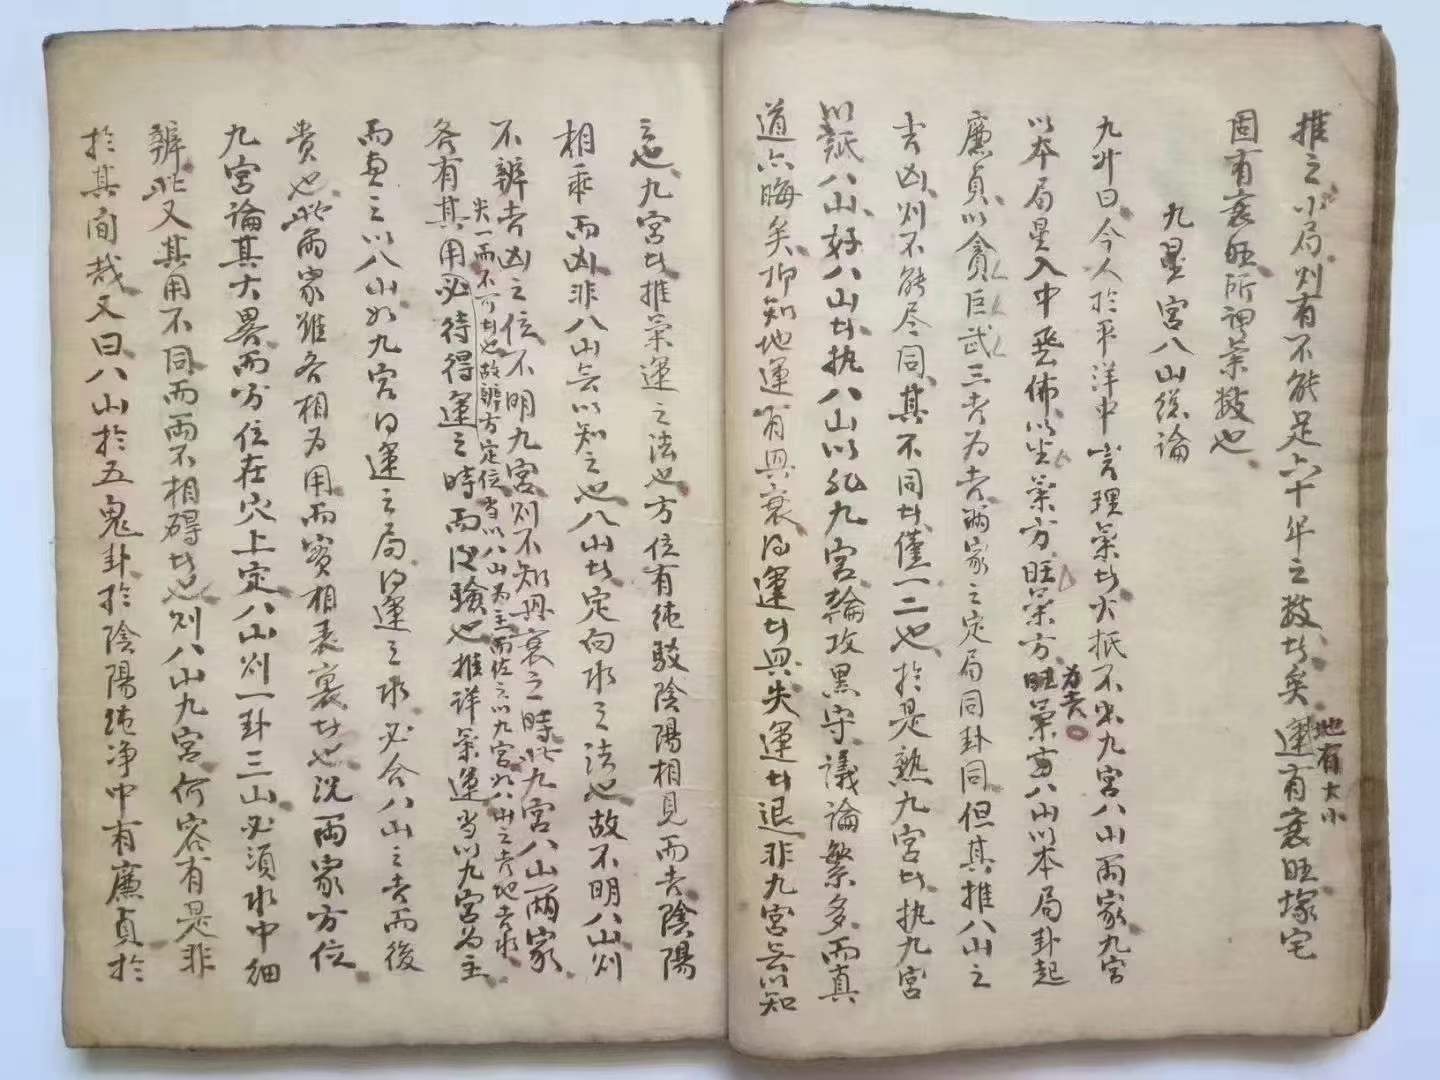 推之小局则有不能足六十年之数者矣運有衰旺塚宅
地有大小
固有衰旺所谓氣数也
九星宮八山總論
九升曰今人於平洋中言理氣者大抵不出九宮八山兩家九宮
以本局星入中飛佈以生氣方旺氣方
為吉
旺氣寅八山以本局卦起
廉貞以貪巨武三吉为吉兩家之定局同卦同但其推八山之
吉凶则不能尽同其不同者僅一二也於是熟九宮者执九宮
以詆八山好八山者执八山以死九宮輪攻墨守議論繁多而真
道六晦矣抑知地運有興衰得運者興失運者退非九宮無以知
之也九宮者推氣運之法也方位有純駁陰陽相見而吉陰陽
相乘而凶非八山無以知之也八山者定向水之法也故不明八山则
不辨吉凶之位不明九宮则不知興衰之時此九宮八山兩家
失一而不可者也故辨方定位当以八山为主而佐之以九宮如八山之吉地吉水
各有其用必待得運之時而後驗也推详氣運当以九宮为主
而真之以八山如九宮得運之局得運之水必合八山之吉而後
貴也此兩家雖各相为用而實相表裏者也况兩家方位
九宮論其大畧而方位在穴上定八山则一卦三山必須水中細
辨此又其用不同而兩不相碍者也则八山九宮何容有是非
於其间哉又曰八山於五鬼卦於陰陽純净中有廉貞於